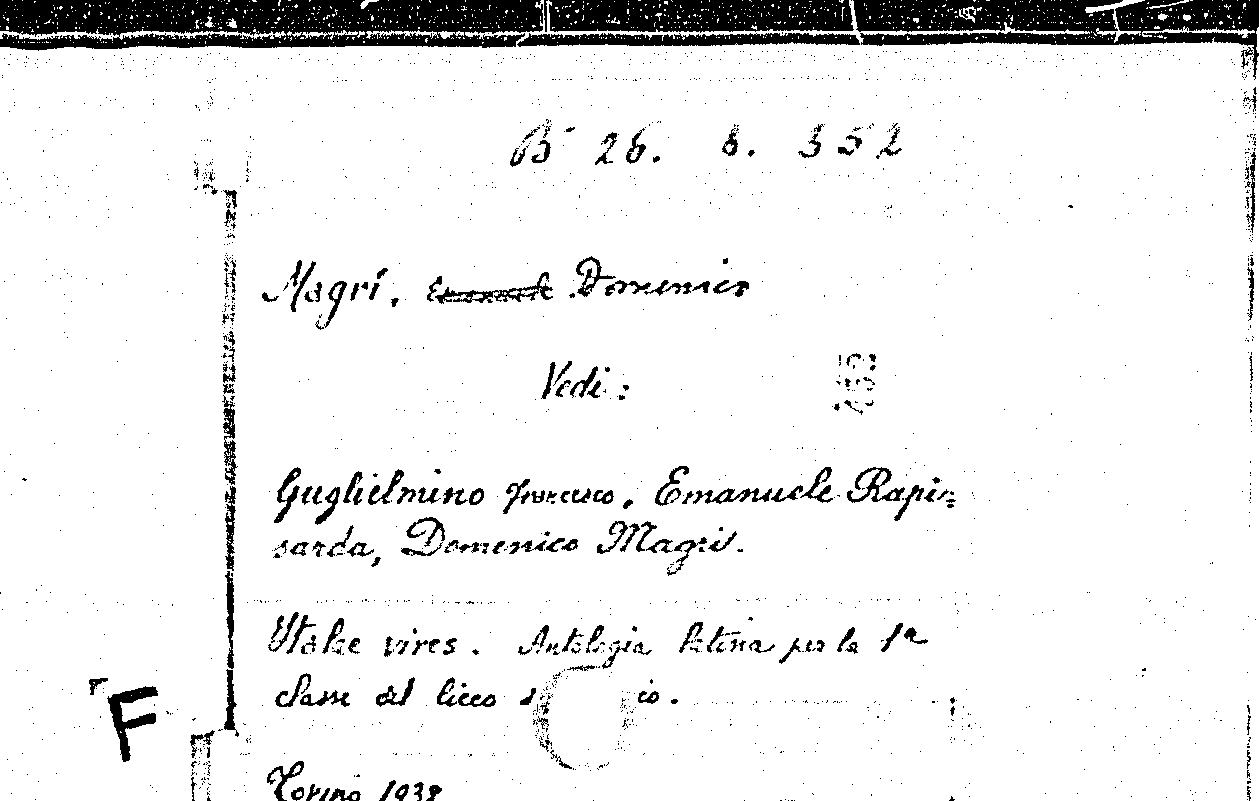 B 26. 8. 352
Magrí. Domenico
Vedi:
Guglielmino Francesco. Emanuele Rapi=
sarda, Domenico Magrí.
Italae vires. Antologia latina per la 1ª
classe del liceo
Torino 1938
F